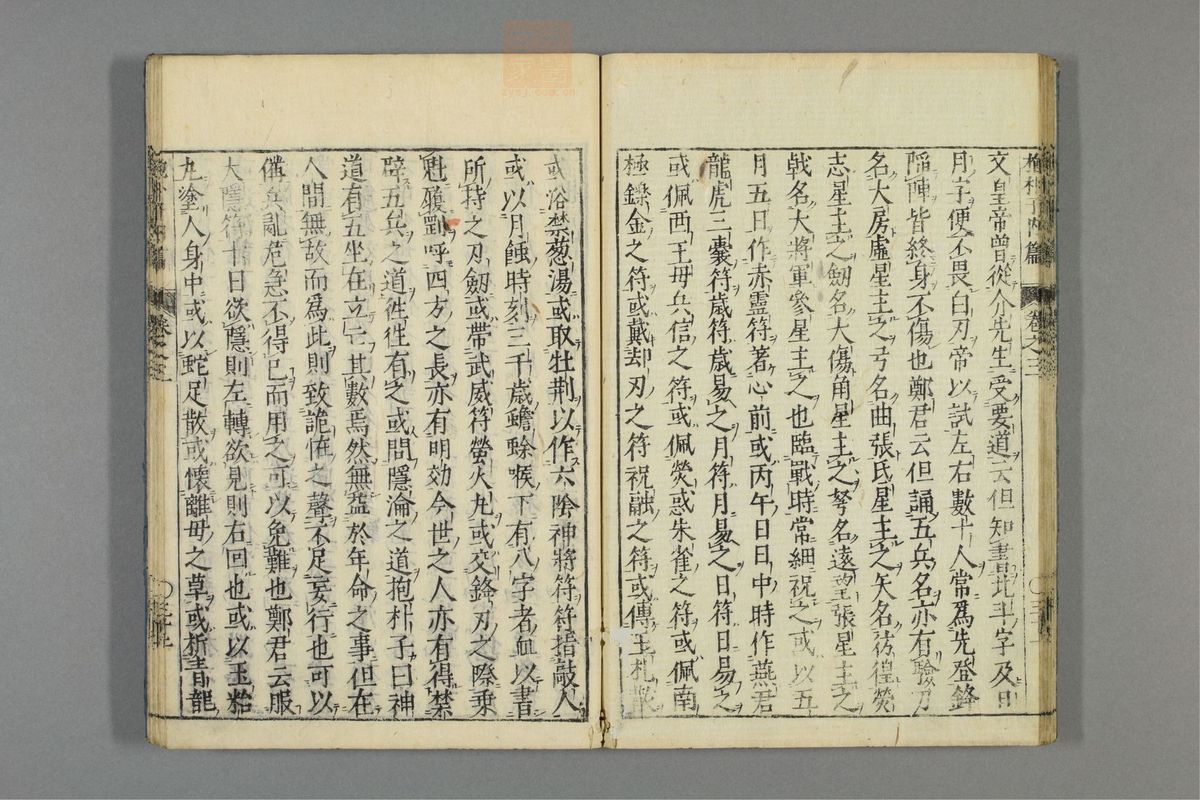 文皇帝曾從介先生受要道云但知書北斗字及日
月字便不畏白刃帝以試左右數十人常爲先登鋒
陷陣皆終身不傷也鄭君云但誦五兵名亦有驗刀
名大房虛星主之弓名曲張氐星主之矢名彷徨熒
惑星主之劒名大傷角星主之弩名遠望張星主之
戟名大將軍參星主之也臨戰時常細祝之或以五
月五日作赤靈符著心前或丙午日日中時作燕君
龍虎三囊符歲符歲易之月符月易之日符日易之
或佩西王母兵信之符或佩熒惑朱雀之符或佩南
極鑠金之符或戴却刃之符祝融之符或傳玉札散
或浴禁葱湯或取牡荆以作六陰神將符符指敵人
或以月蝕時刻三千歲蟾蜍喉下有八字者血以書
所持之刃劒或帶武威符螢火丸或交鋒刃之際乗
魁履罡呼四方之長亦有明効今世之人亦有得禁
辟五兵之道徃徃有之或問隱淪之道抱朴子曰神
道有五坐在立亡其數焉然無益於年命之事但在
人間無故而爲此則致詭怪之聲不足妄行也可以
備兵亂危急不得已而用之可以免難也鄭君云服
大隱符十日欲隱則左轉欲見則右回也或以玉粭
丸塗人身中或以蛇足散或懷離母之草或折青龍